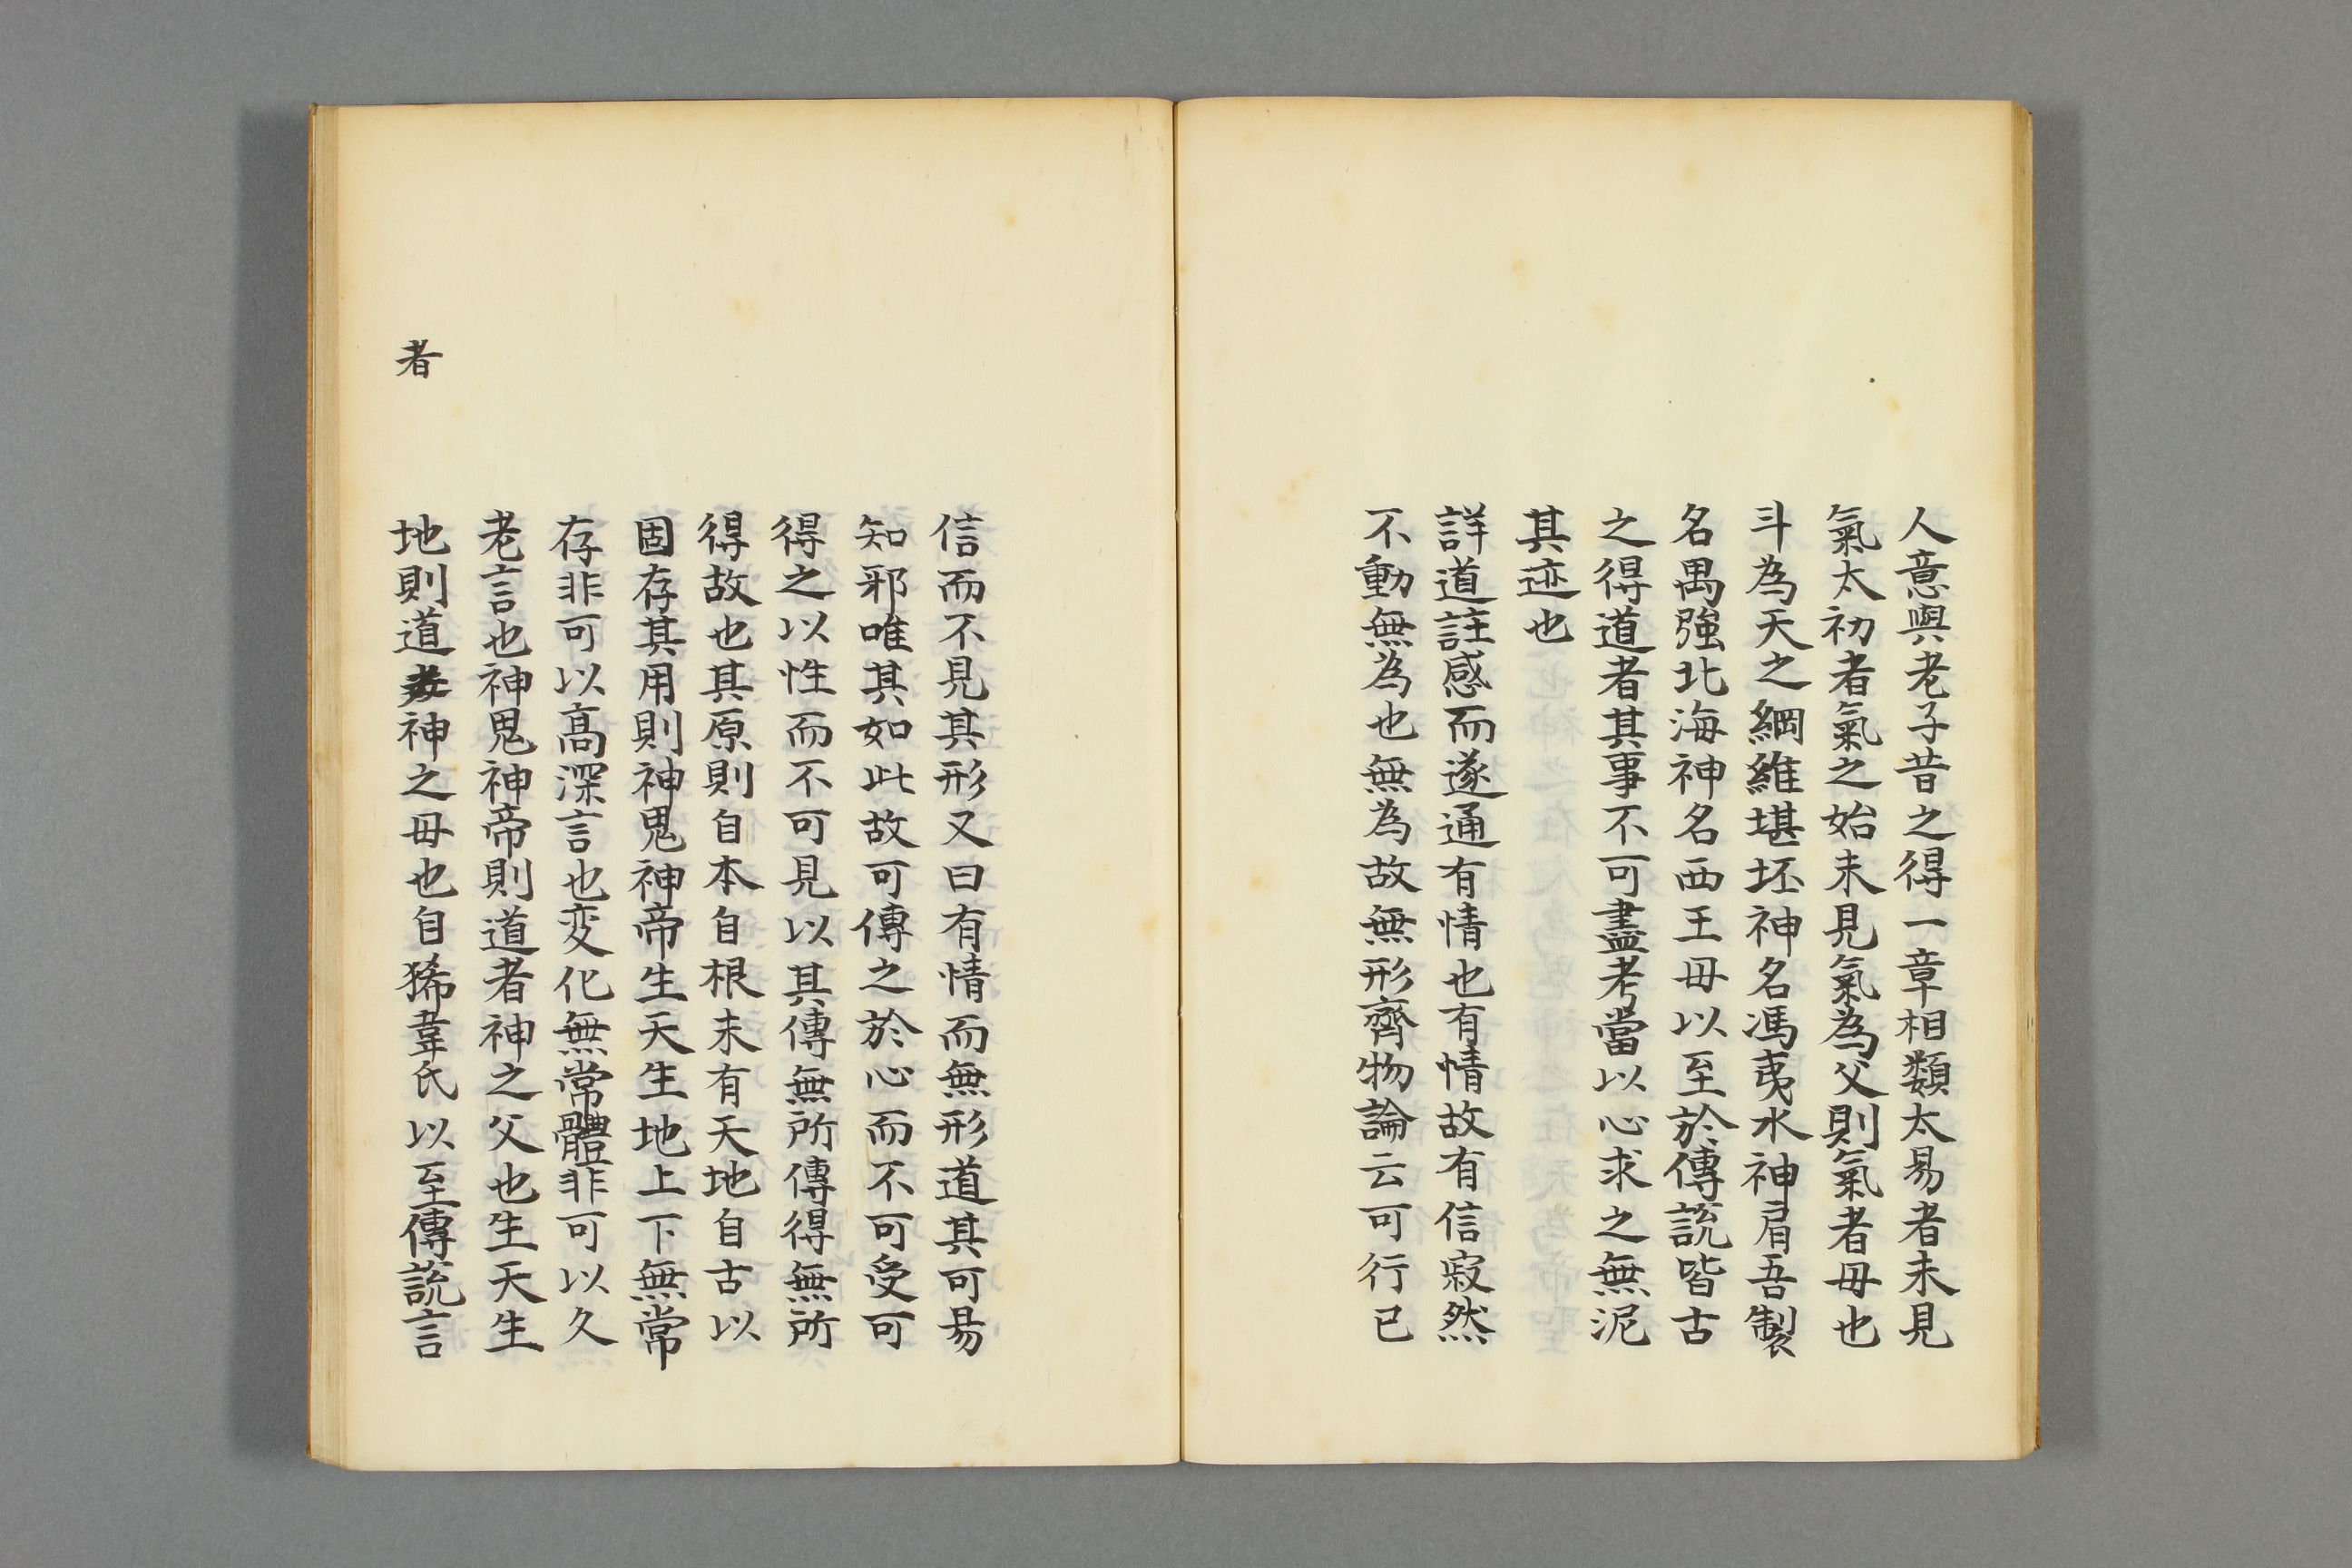 人意與老子昔之得一章相類太易者未見
氣太初者氣之始未見氣為父則氣者毋也
斗為天之綱維堪坏神名馮夷水神肩吾製
名禺強北海神名西王毋以至於傳説皆古
之得道者其事不可盡考當以心求之無泥
其迹也
詳道註感而遂通有情也有情故有信寂然
不動無為也無為故無形齊物論云可行已
信而不見其形又曰有情而無形道其可易
知邪唯其如此故可傳之於心而不可受可
得之以性而不可見以其傳無所傳得無所
得故也其原則自本自根未有天地自古以
固存其用則神鬼神帝生天生地上下無常
存非可以高深言也変化無常體非可以久
老言也神鬼神帝則道者神之父也生天生
者
地則道神之毋也自狶韋氏以至傳説言